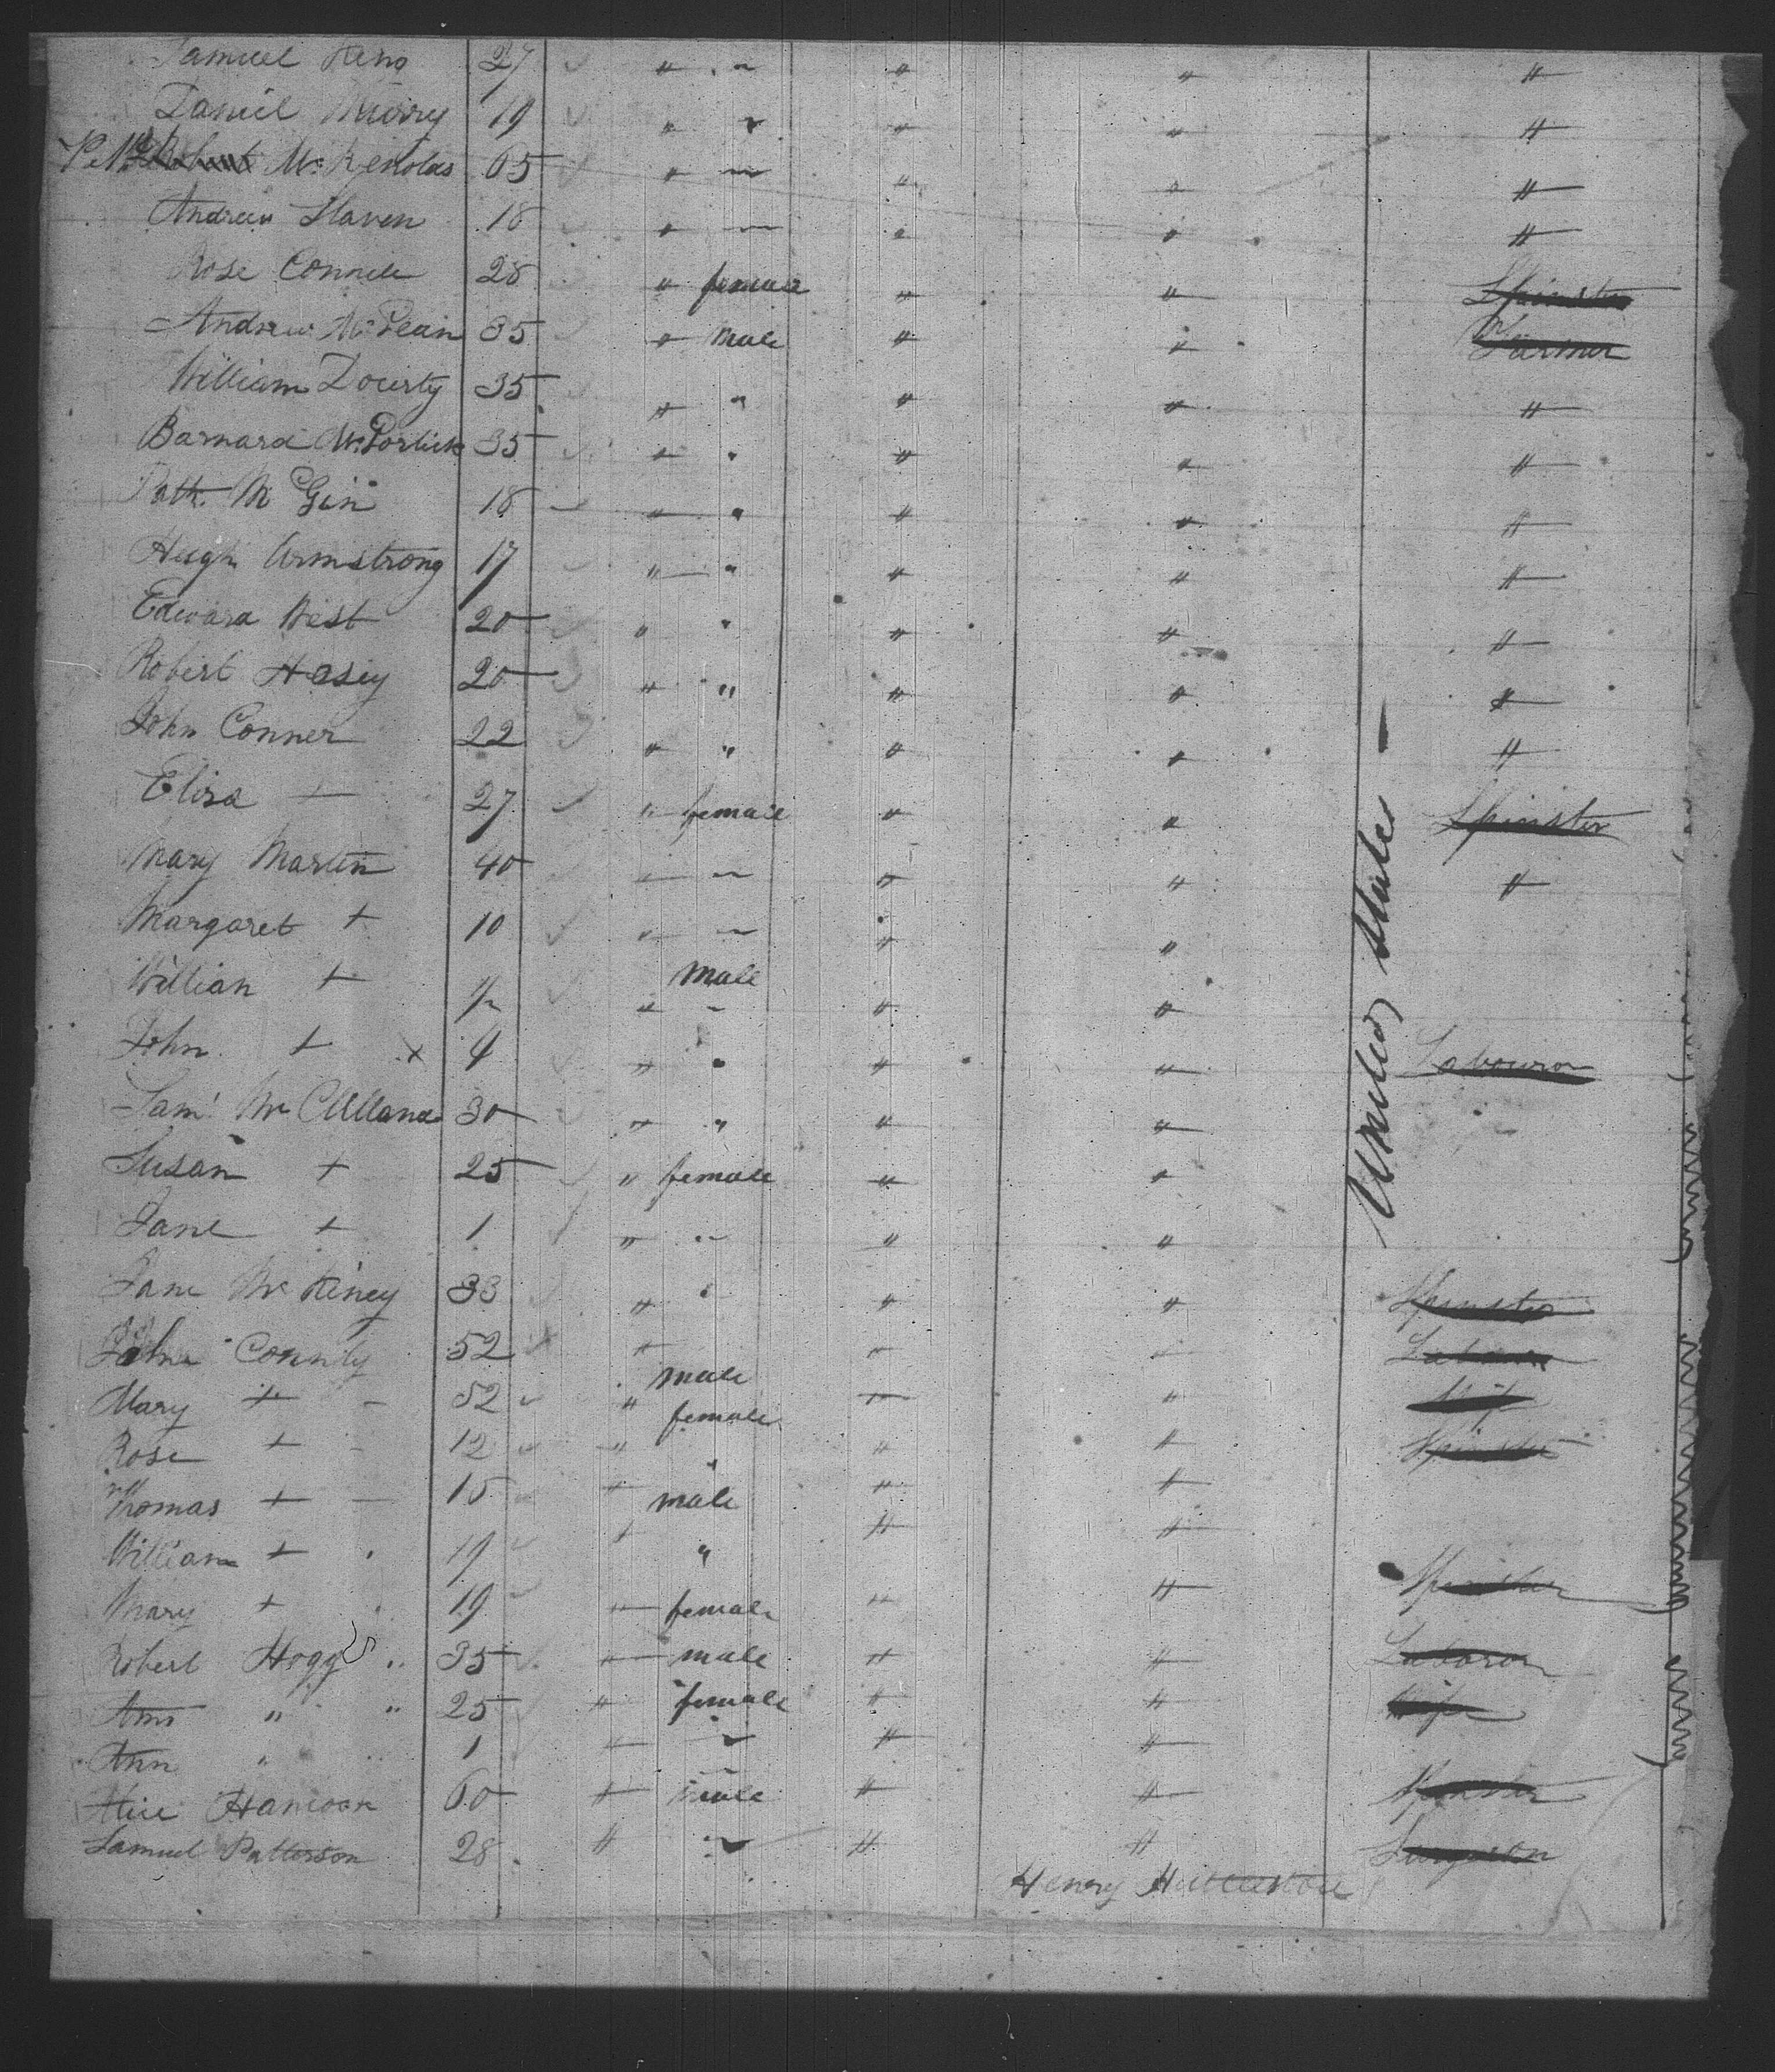 Samuel Keno 27 " ~ " " "
Daniel Murry 19 " ~ " " "
McRenolds 65 " ~ " " "
Andrew Slaven 18 " ~ " " "
Rose 28 " female " " Spinster
Andrew McLean 35 " male " " Farmer
William Dourty 35 " " " " "
Barnard 35 " " " " "
Patk. McGin 18 " " " " "
Hugh Armstrong 17 " " " " "
Edward West 20 " " " " "
Robert Hasey 20 " " " " "
John Conner 22 " " " " "
Eliza + 27 " female " " Spinster
Mary Martin 40 " ~ " " "
Margaret + 10 " ~ " "
William + 1/2 " male " "
John + x 9 " " " " Labourer
Saml McClelland 30 " " " "
Susan + 25 " female " "
Jane + 1 " ~ " "
Jane McKiney 33 " " " " Spinster
John Connly 52 " male " " Labourer
Mary + 52 " female " " Wife
Rose + 12 " " " " Spinster
Thomas + 15 " male " "
William + 17 " " " "
Mary + 19 " female " " Spinster
Robert Hogg 35 " male " " Laborer
Ann " " 25 " female " " Wife
Ann " 1 " ~ " "
Alice 60 " male " " Spinster
Samuel Patterson 28 " ~ " "
United States
Henry